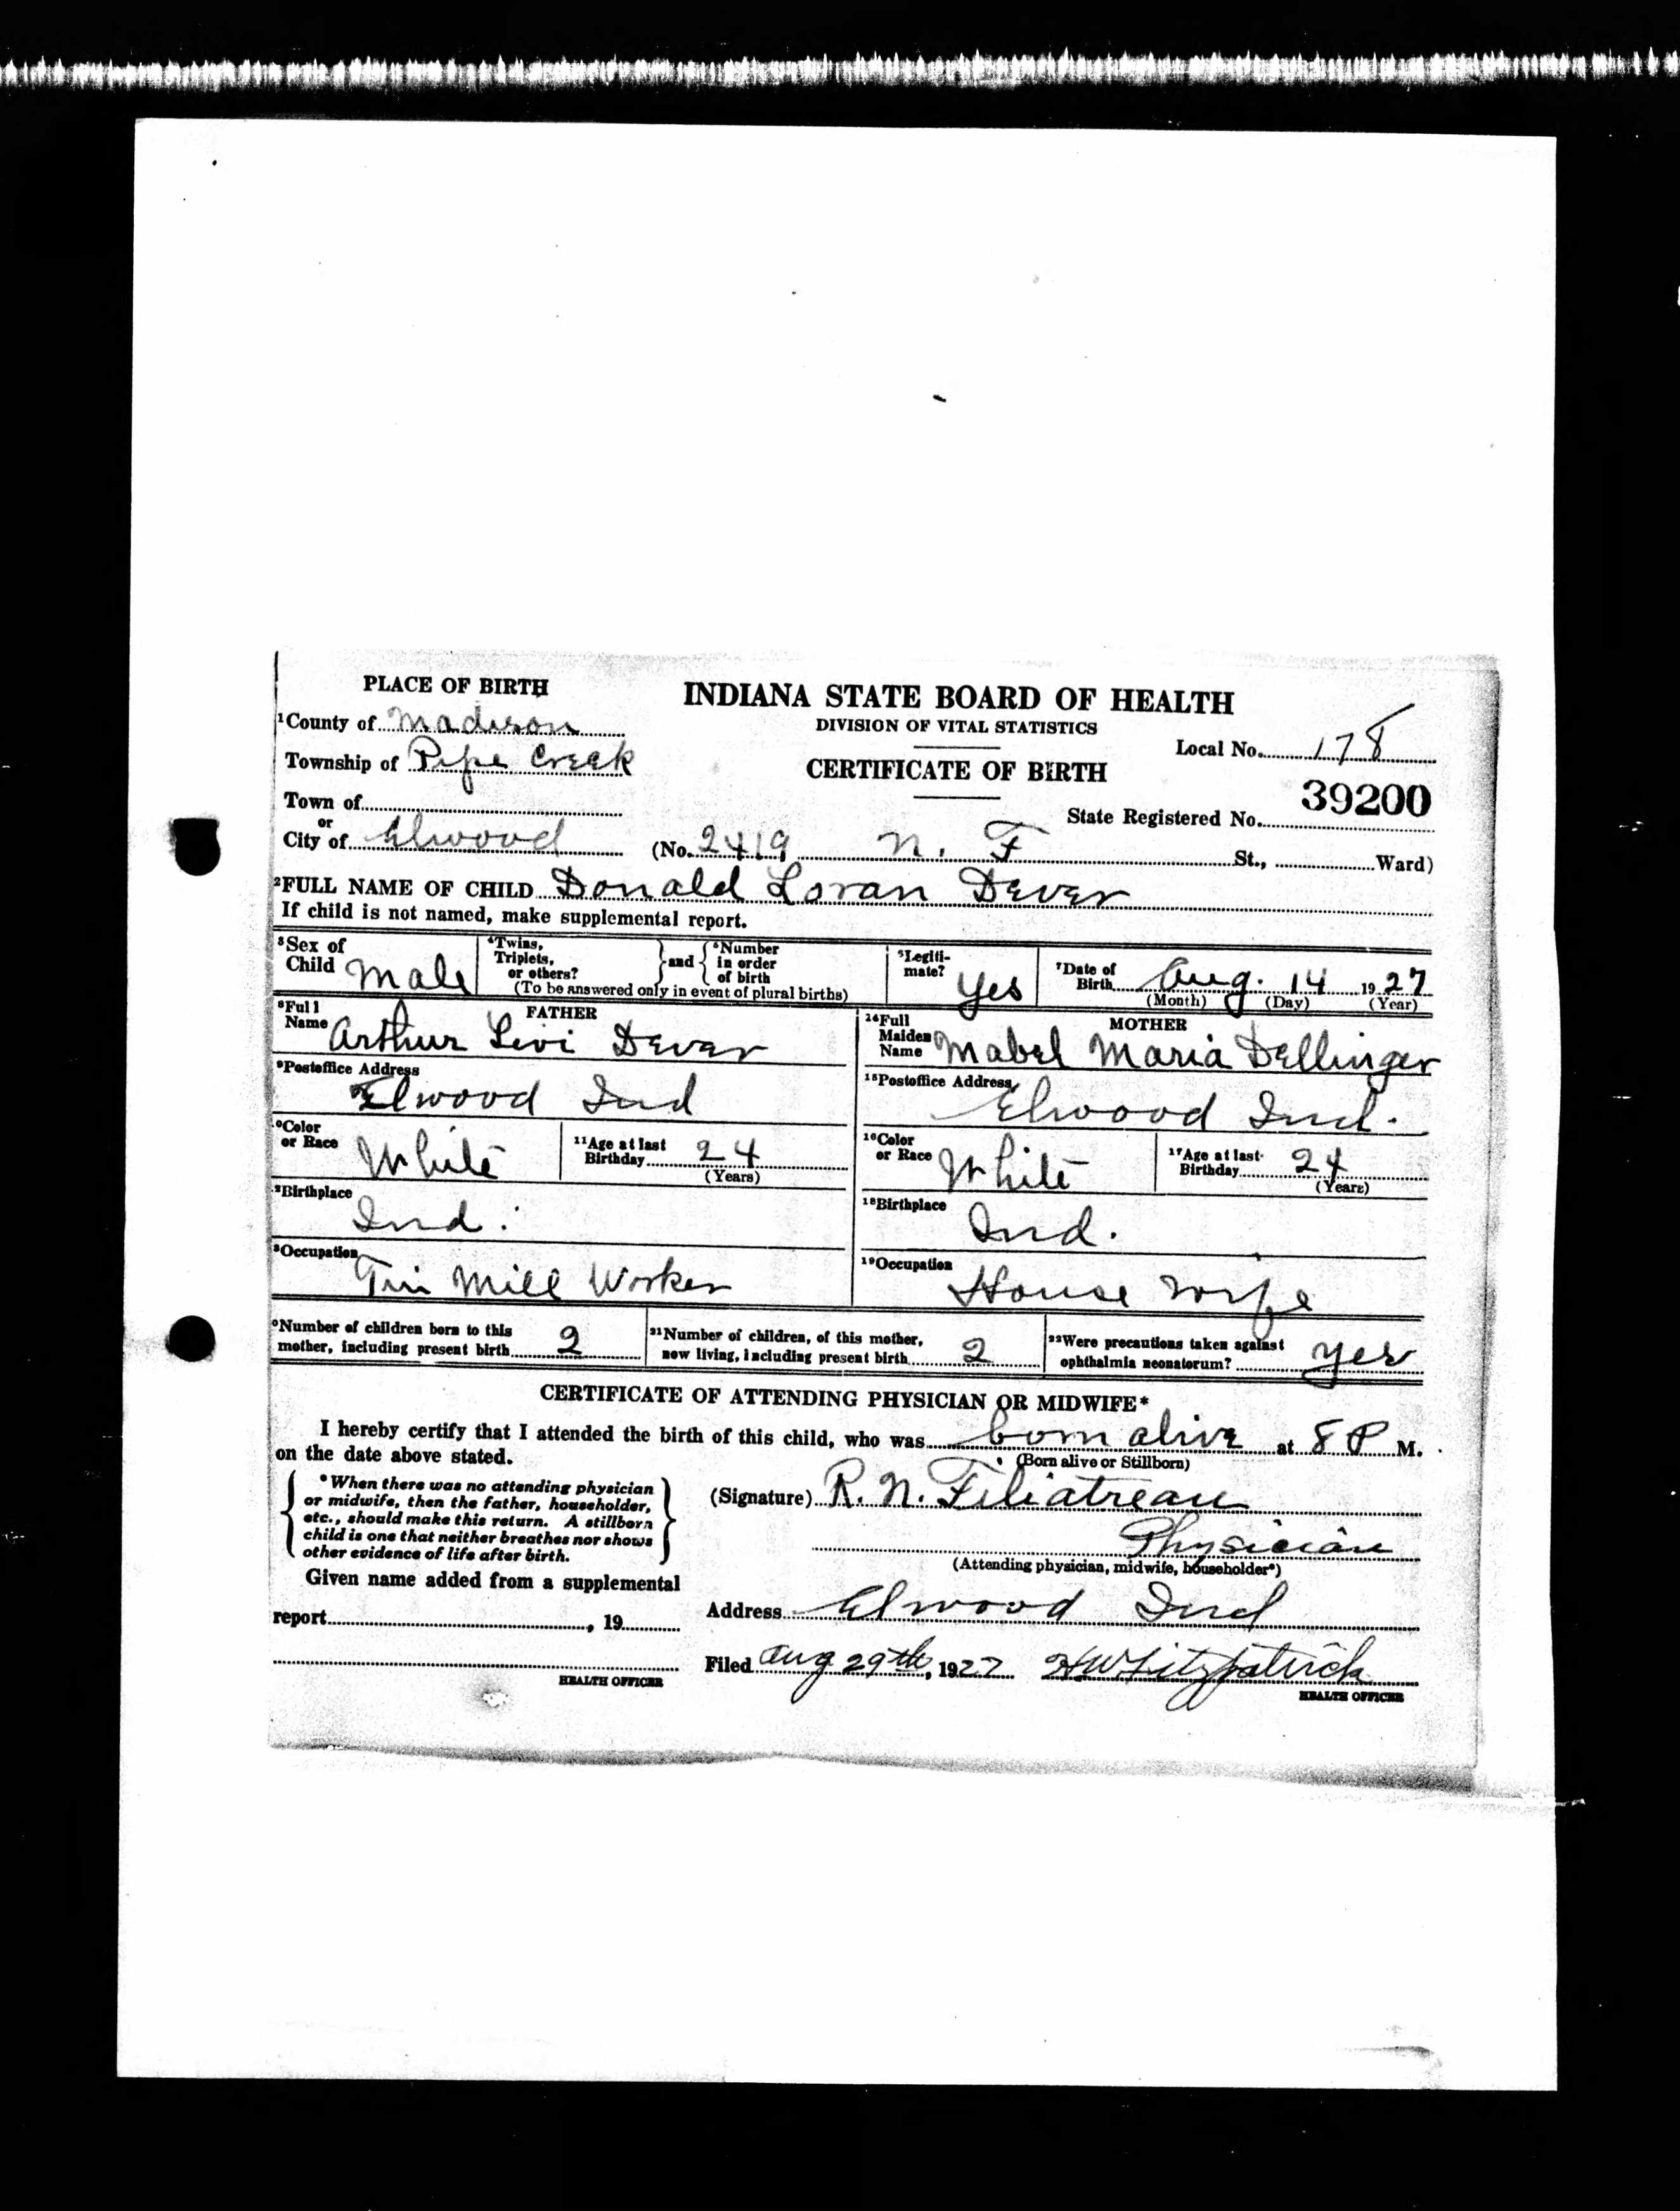 PLACE OF BIRTH
INDIANA STATE BOARD OF HEALTH
DIVISION OF VITAL STATISTICS
CERTIFICATE OF BIRTH
1County of Madison
Township of Pipe Creek
Local No. 178
Town of
or
State Registered No. 39200
City of Elwood (No. 2419 N. F St., Ward)
2FULL NAME OF CHILD Donald Loran Dever
If child is not named, make supplemental report.
3Sex of Child Male
4Twins, Triplets, or others? and 5Number in order of birth
(To be answered only in event of plural births)
5Legiti-mate? Yes
7Date of Birth Aug. 14 1927
(Month) (Day) (Year)
FATHER
8Full Name Arthur Levi Dever
MOTHER
14Full Maiden Name Mabel Maria Dellinger
9Postoffice Address
Elwood Ind
15Postoffice Address
Elwood Ind.
0Color or Race White
11Age at last Birthday 24
(Years)
16Color or Race White
17Age at last Birthday 24
(Years)
2Birthplace
Ind.
18Birthplace
Ind.
3Occupation
Tin Mill Worker
19Occupation
House wife
0Number of children born to this mother, including present birth 2
21Number of children, of this mother, now living, including present birth 2
22Were precautions taken against ophthalmia neonatorum? yes
CERTIFICATE OF ATTENDING PHYSICIAN OR MIDWIFE*
I hereby certify that I attended the birth of this child, who was born alive at 8 P M.
(Born alive or Stillborn)
on the date above stated.
*When there was no attending physician
or midwife, then the father, householder,
etc., should make this return. A stillborn
child is one that neither breathes nor shows
other evidence of life after birth.
(Signature) R. N. Filiatreau
Physician
(Attending physician, midwife, householder*)
Given name added from a supplemental
report , 19
Address Elwood Ind
Filed Aug 29th, 1927 HW Fitzpatrick
HEALTH OFFICER
HEALTH OFFICER